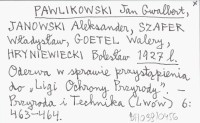 PAWLIKOWSKI Jan Gwalbert,
JANOWSKI Aleksander, SZAFER
Władysław, GOETEL Walery,
HRYNIEWIECKI Bolesław 1927 b.
Odezwa w sprawie przystąpienia
do „Ligi Ochrony Przyrody".—
Przyroda i Technika (Lwów) 6:
463-464.